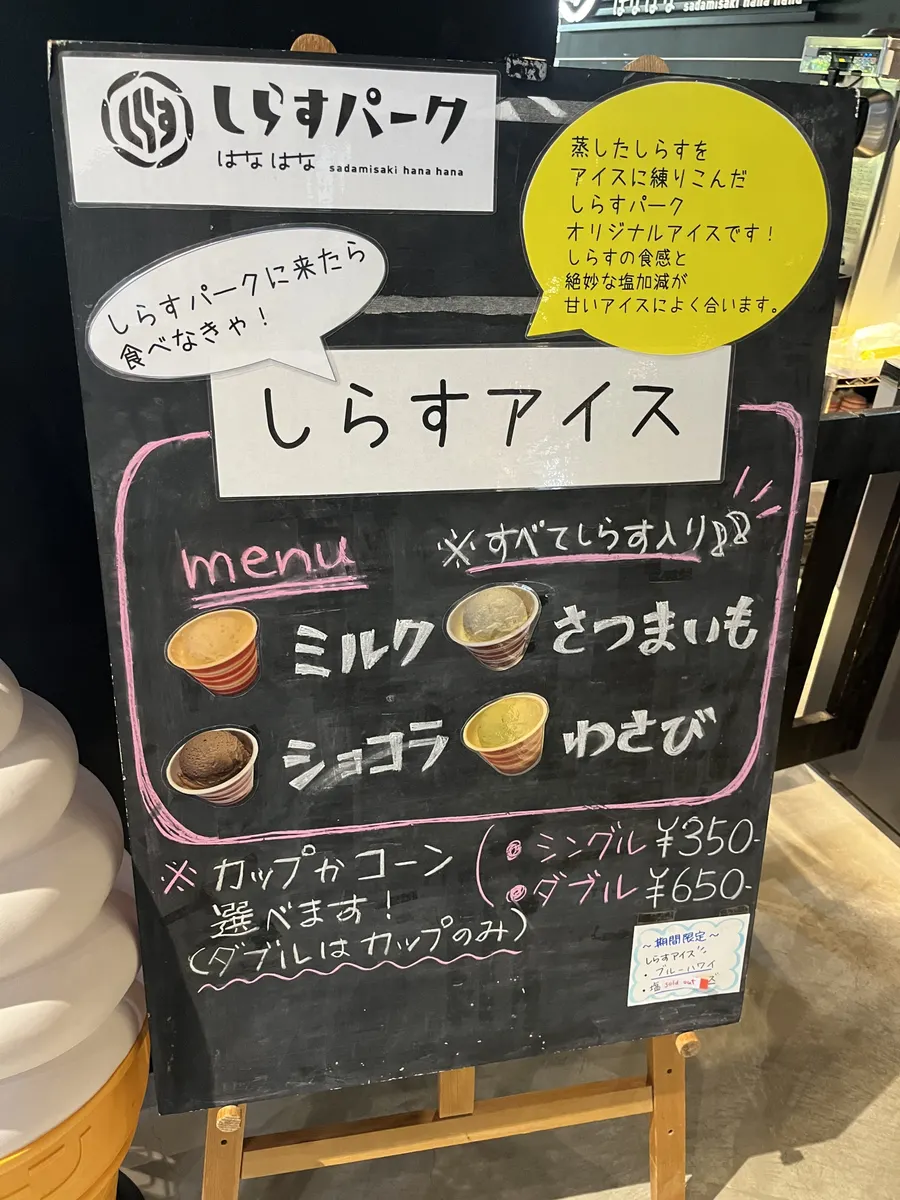 はなはな sadamisaki hana hana
しらす
しらすパーク
はなはな sadamisaki hana hana
蒸したしらすを
アイスに練りこんだ
しらすパーク
オリジナルアイスです！
しらすの食感と
絶妙な塩加減が
甘いアイスによく合います。
しらすパークに来たら
食べなきゃ！
しらすアイス
menu
※すべてしらす入り
ミルク
さつまいも
ショコラ
わさび
※カップかコーン
選べます！
(ダブルはカップのみ)
シングル ¥350-
ダブル ¥650-
～期間限定～
しらすアイス
・ブルーハワイ
・塩 sold out ズ